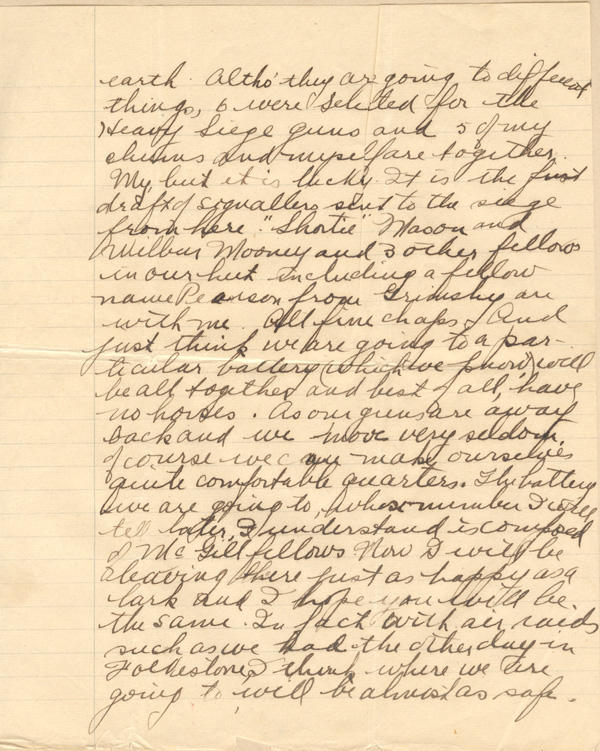 earth. Altho' they are going to different
things, 6 were selected for the
Heavy Siege guns and 5 of my
chums and myself are together.
My, but it is lucky. It is the first
draft of signallers sent to the siege
from here. "Shortie" Mason and
Wilbur Mooney and 3 other fellows
in our hut including a fellow
name Pearson from Grimsby are
with me. All fine chaps. And
just think we are going to a par-
ticular battery (which we know) will
be all together and best of all, have
no horses. As our guns are away
back and we move very seldom.
of course we can make ourselves
quite comfortable quarters. The battery
we are going to, whose number I will
tell later, I understand is composed
of McGill fellows. Now I will be
leaving here just as happy as a
lark and I hope you will be
the same. In fact with air raids
such as we had the other day in
Folkestone I think where we are
going to will be almost as safe.